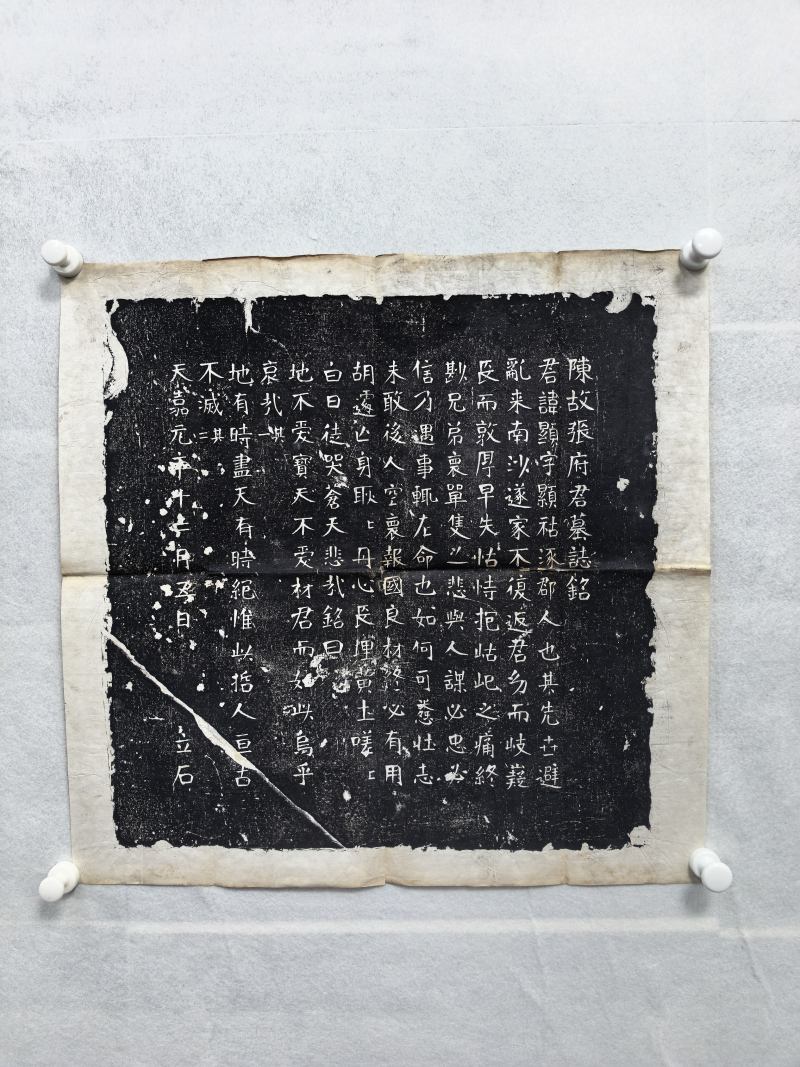 陳故張府君墓誌銘
君諱顯字顯祜涿郡人也其先世避
亂来南沙遂家不復返君幼而岐嶷
長而敦厚早失怙恃抱岵屺之痛終
尟兄弟褱單隻之悲與人謀必忠必
信乃遇事輒左命也如何可慈壮志
未敢後人空褱報國良材終必有用
胡遽亾身耿〻丹心長埋黄土嗟〻
白日徒哭倉天悲哉銘曰
地不爱寶天不爱材君而如此烏乎
哀哉 其一
地有時盡天有時絕惟此哲人亘古
不滅 其二
天嘉元年十二月五日 立石